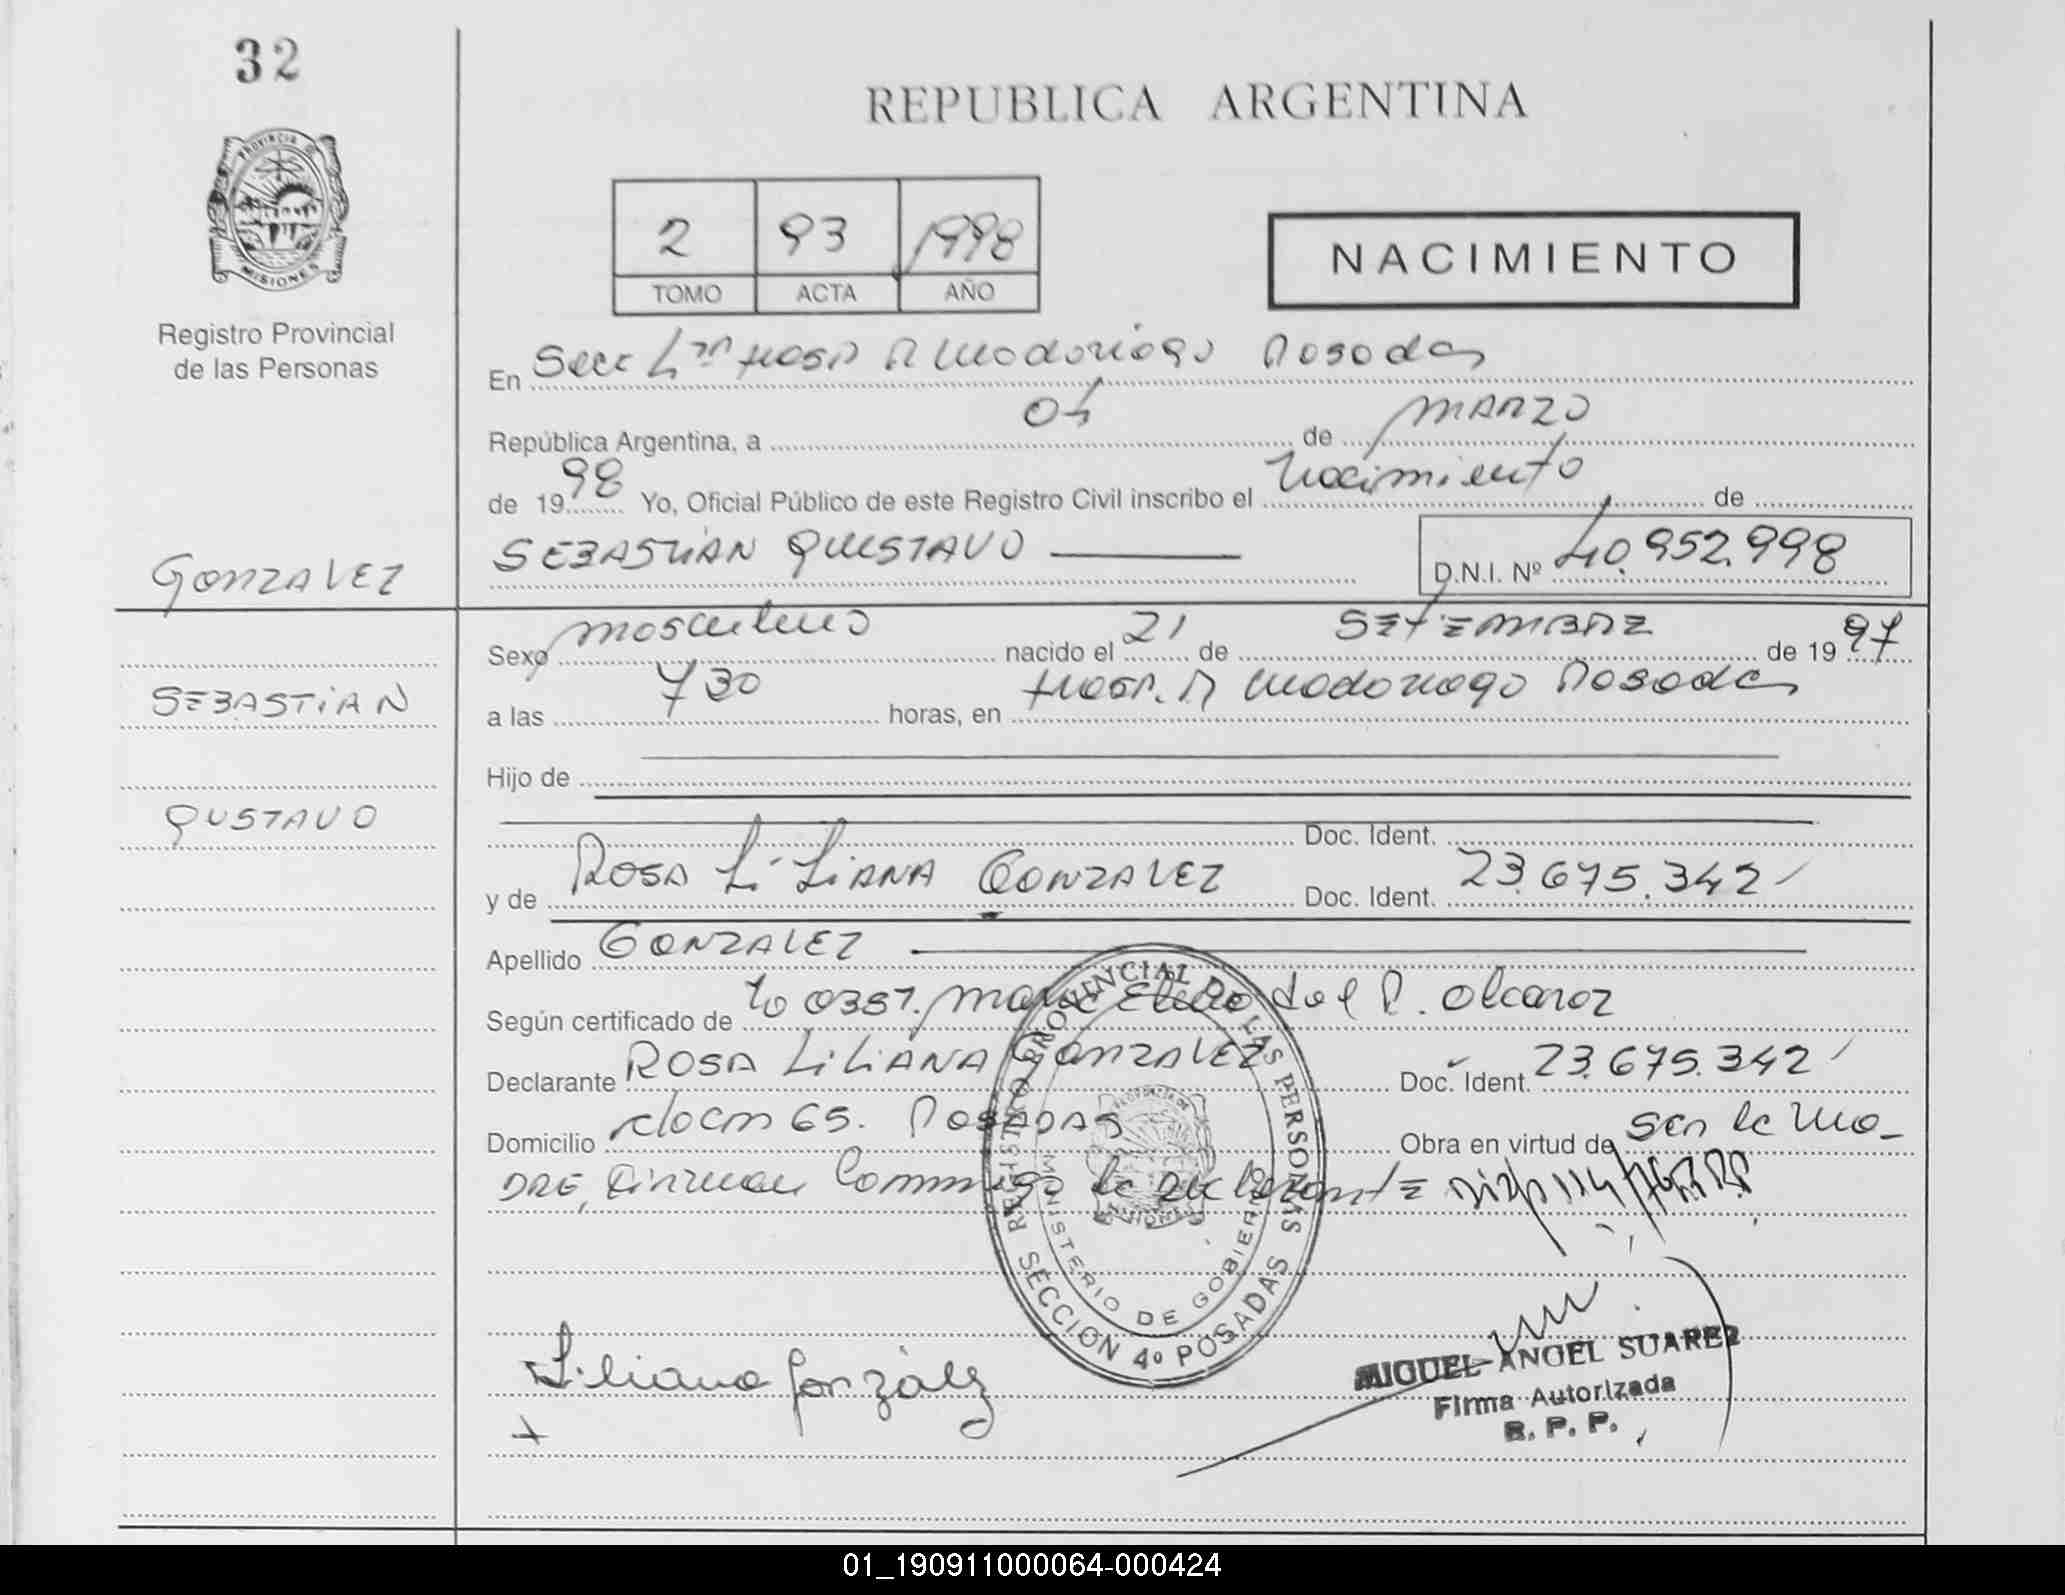 32
REPUBLICA ARGENTINA
PROVINCIA DE
MISIONES
Registro Provincial
de las Personas
2 93 1998
TOMO ACTA AÑO
NACIMIENTO
En Secc 4ta Hosp R Madariaga Posadas
República Argentina, a 04 de MARZO
de 1998 Yo, Oficial Público de este Registro Civil inscribo el Nacimiento de
SEBASTIAN GUSTAVO D.N.I. Nº 40.952.998
GONZALEZ
SEBASTIAN
GUSTAVO
Sexo masculino nacido el 21 de SETIEMBRE de 1997
a las 730 horas, en Hosp. R Madariaga Posadas
Hijo de
Doc. Ident.
y de ROSA LILIANA GONZALEZ Doc. Ident. 23.675.342
Apellido GONZALEZ
Según certificado de OBST. Elena del R. Alcaraz
Declarante ROSA LILIANA GONZALEZ Doc. Ident. 23.675.342
Domicilio 65. POSADAS Obra en virtud de ser la MA-
DRE, Firman conmigo la declarante
REGISTRO PROVINCIAL DE LAS PERSONAS
MINISTERIO DE GOBIERNO
SECCION 4º POSADAS
Liliana González
MIGUEL ANGEL SUAREZ
Firma Autorizada
R. P. P.
01_190911000064-000424